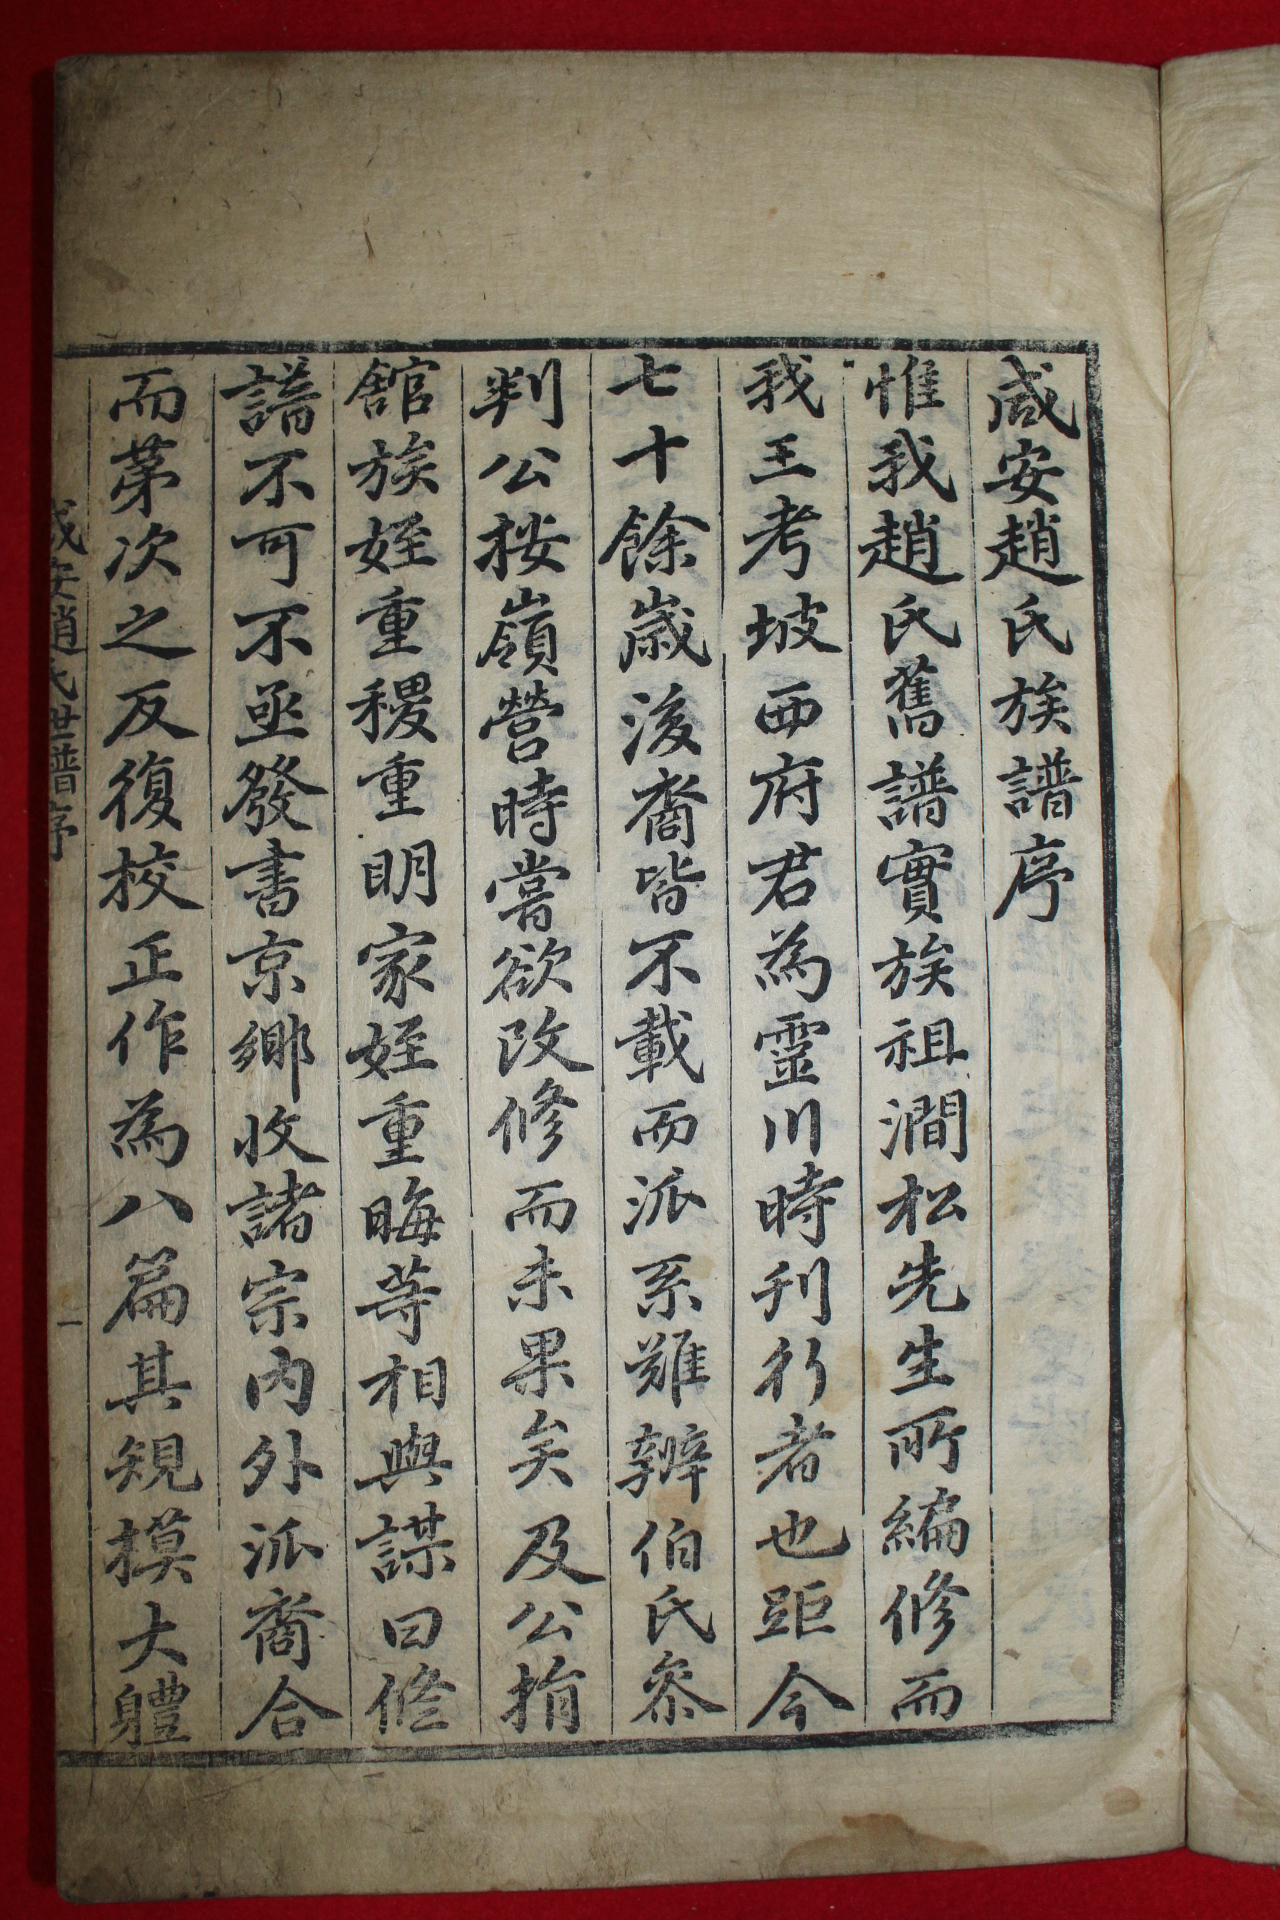 咸安趙氏族譜序
惟我趙氏舊譜實族祖澗松先生所編修而
我王考坡西府君為靈川時刊行者也距今
七十餘歲後裔皆不載而派系難辨伯氏叅
判公按嶺營時嘗欲改修而未果矣及公捐
舘族姪重稷重明家姪重晦等相與謀曰修
譜不可不亟發書京鄉收諸宗內外派裔合
而苐次之反復校正作為八篇其規模大軆
咸安趙氏世譜序
一